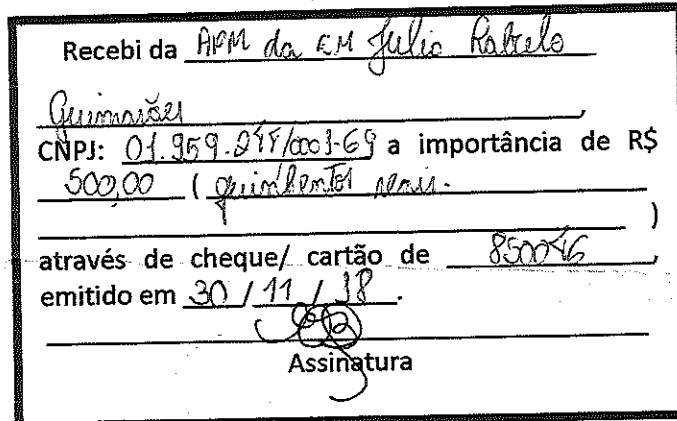 Recebi da APM da EM Julio Rabelo
Guimarães,
CNPJ: 01.959. /0001-69 a importância de R$
500,00 ( quinhentos reais.
)
através de cheque/ cartão de 850046,
emitido em 30 / 11 / 18.
Assinatura